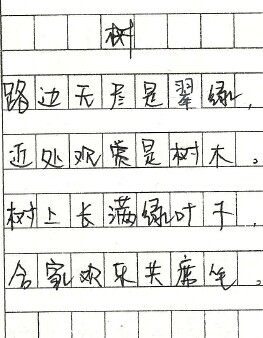 树
路边无尽是翠绿,
近处观赏是树木。
树上长满绿叶子,
合家欢乐共席。